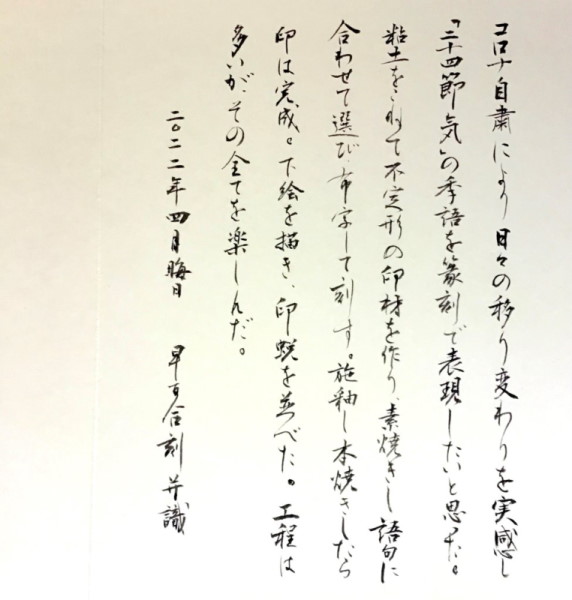 コロナ自粛により日々の移り変わりを実感し
「二十四節気」の季語を篆刻で表現したいと思った。
粘土をこねて不定形の印材を作り、素焼きし語句に
合わせて選び布字して刻す。施釉し本焼きしたら
印は完成。下絵を描き、印蛻を並べた。工程は
多いが、その全てを楽しんだ。
二〇二二年四月晦日 早百合刻并識